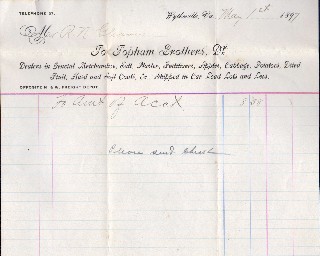 TELEPHONE 37.
Wytheville, Va., May 1st 1897
M A N
To Topham Brothers, Dr.
Dealers in General Merchandise, Salt, Plaster, Fertilizers, Apples, Cabbage, Potatoes, Dried
Fruit, Hard and Soft Coals, &c. Shipped in Car Load Lots and Less.
OPPOSITE N. & W. FREIGHT DEPOT
To Amt of Acct
Please send check